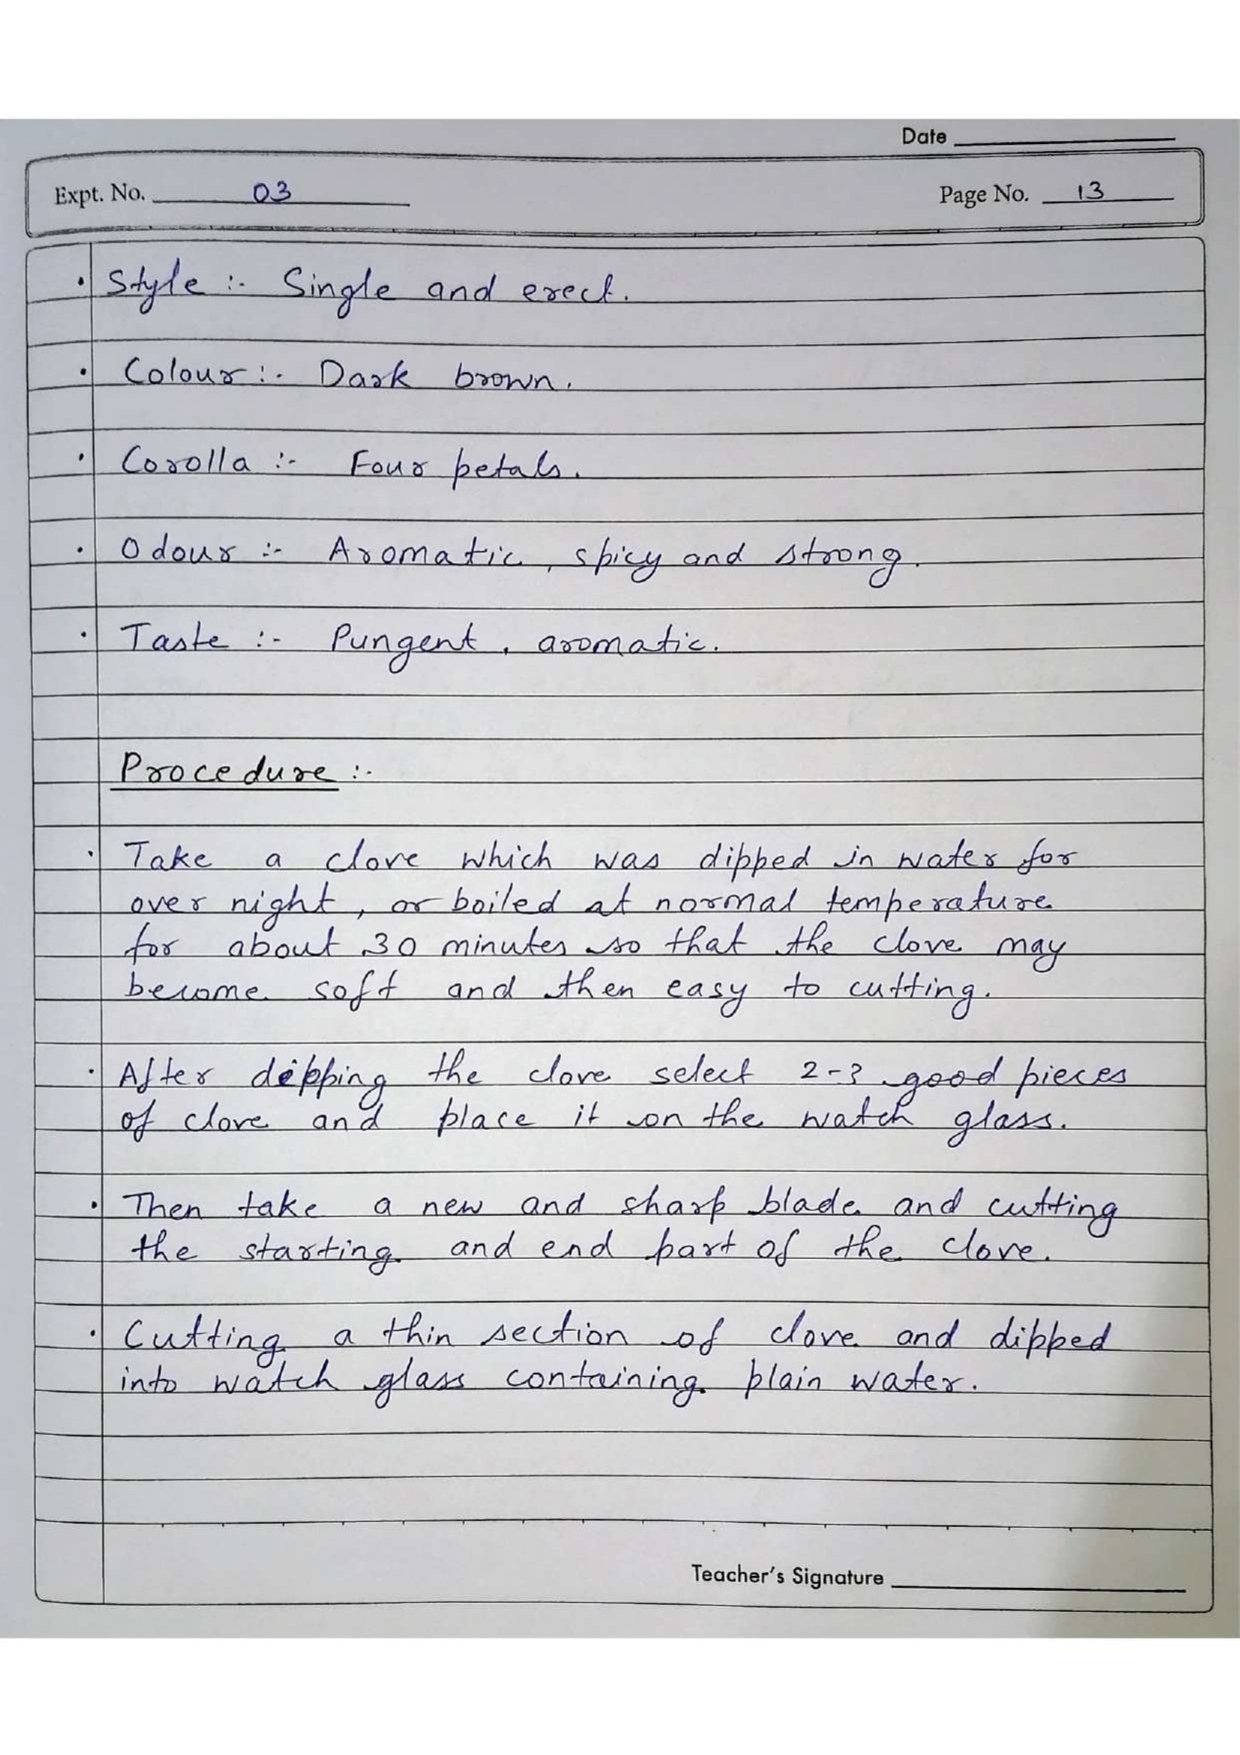 Date
Expt. No. 03
Page No. 13
· Style :- Single and erect.
· Colour :- Dark brown.
· Corolla :- Four petals.
· Odour :- Aromatic, spicy and strong.
· Taste :- Pungent, aromatic.
Procedure :-
· Take a clove which was dipped in water for
over night, or boiled at normal temperature
for about 30 minutes so that the clove may
become soft and then easy to cutting.
· After dipping the clove select 2-3 good pieces
of clove and place it on the watch glass.
· Then take a new and sharp blade and cutting
the starting and end part of the clove.
· Cutting a thin section of clove and dipped
into watch glass containing plain water.
Teacher's Signature